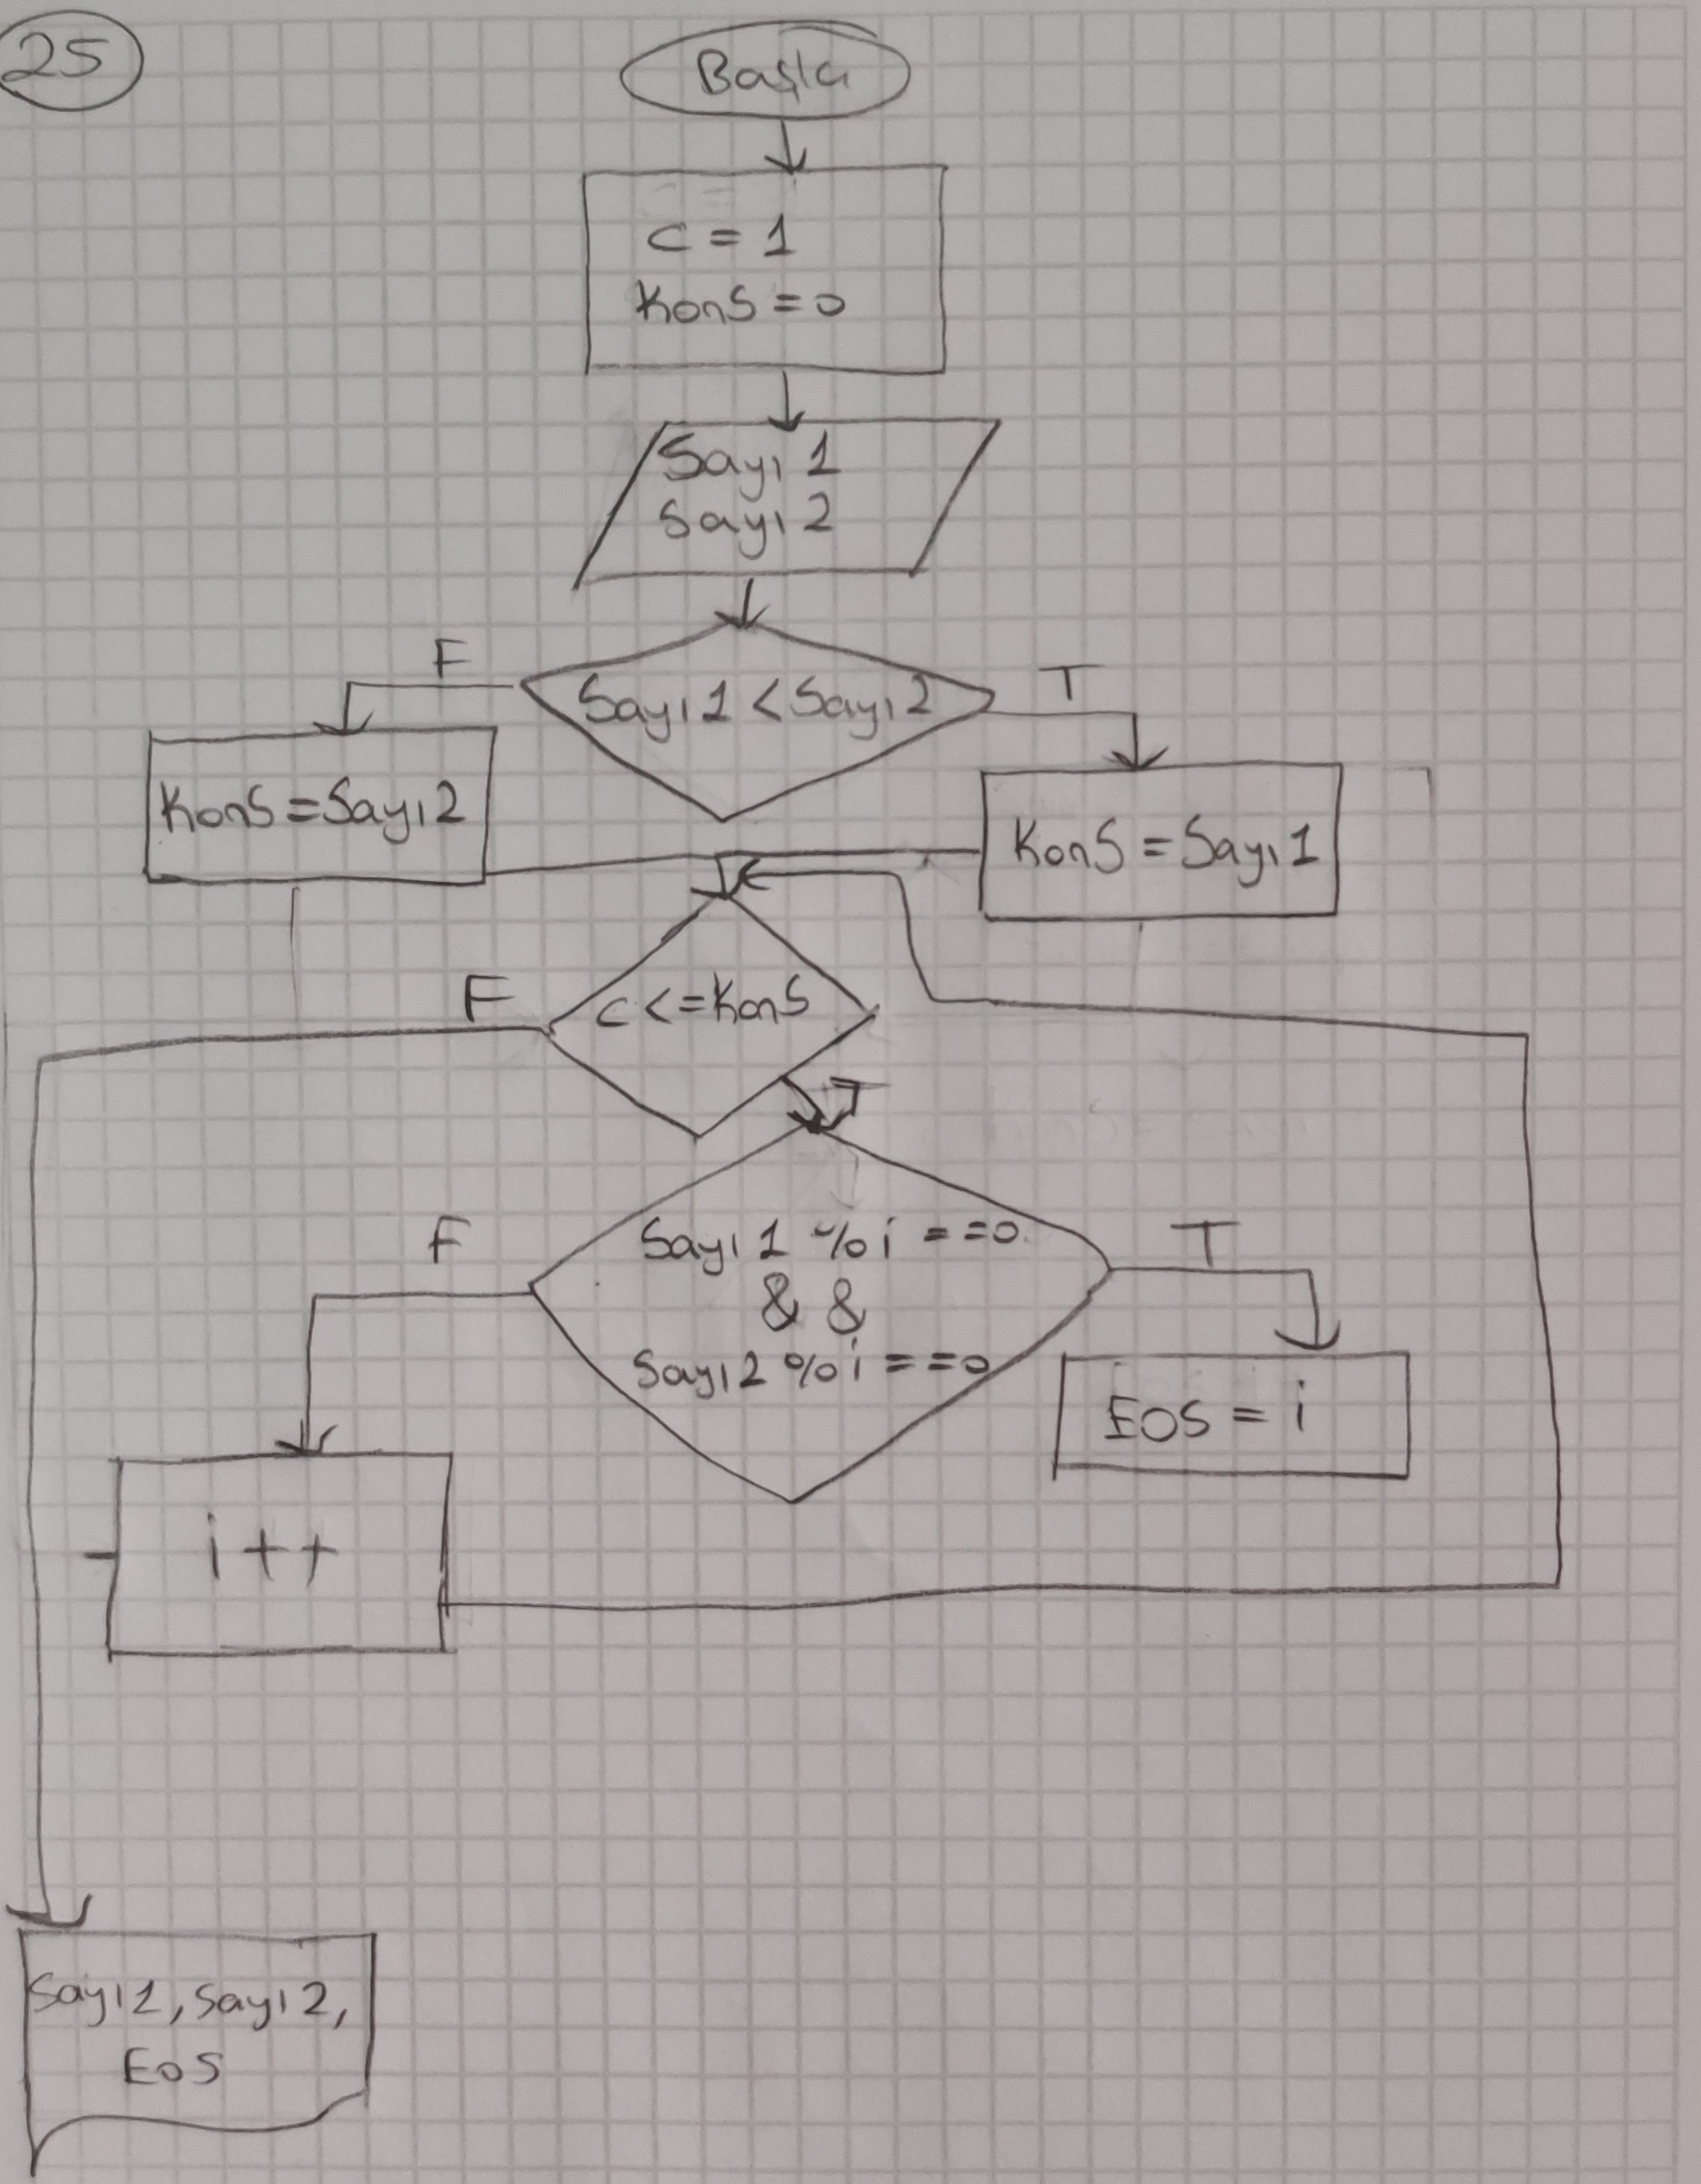 25
Başla
c = 1
KonS = 0
Sayı 1
Sayı 2
F
Sayı 1 < Sayı 2
T
KonS = Sayı 2
KonS = Sayı 1
F
c <= KonS
T
F
Sayı 1 % i == 0
& &
Sayı 2 % i == 0
T
EOS = i
i ++
Sayı 1, Sayı 2,
EOS